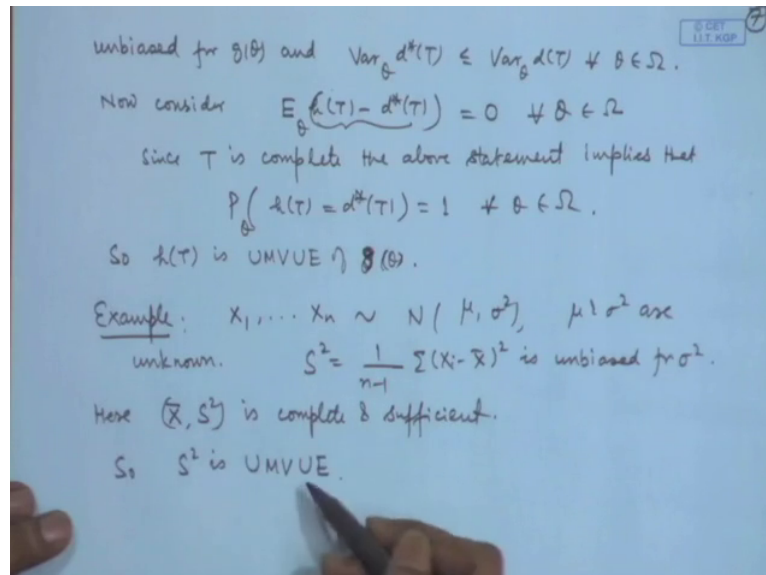 © CET
I.I.T. KGP
7
unbiased for g(θ) and Var_θ d*(T) ≤ Var_θ d(T) ∀ θ ∈ Ω.
Now consider E_θ (h(T) - d*(T)) = 0 ∀ θ ∈ Ω
Since T is complete the above statement implies that
P_θ ( h(T) = d*(T)) = 1 ∀ θ ∈ Ω.
So h(T) is UMVUE of g(θ).
Example: X₁, .... Xn ~ N( μ, σ²), μ & σ² are
unknown. S² = 1/(n-1) Σ(Xi - X̄)² is unbiased for σ².
Here (X̄, S²) is complete & sufficient.
So S² is UMVUE.